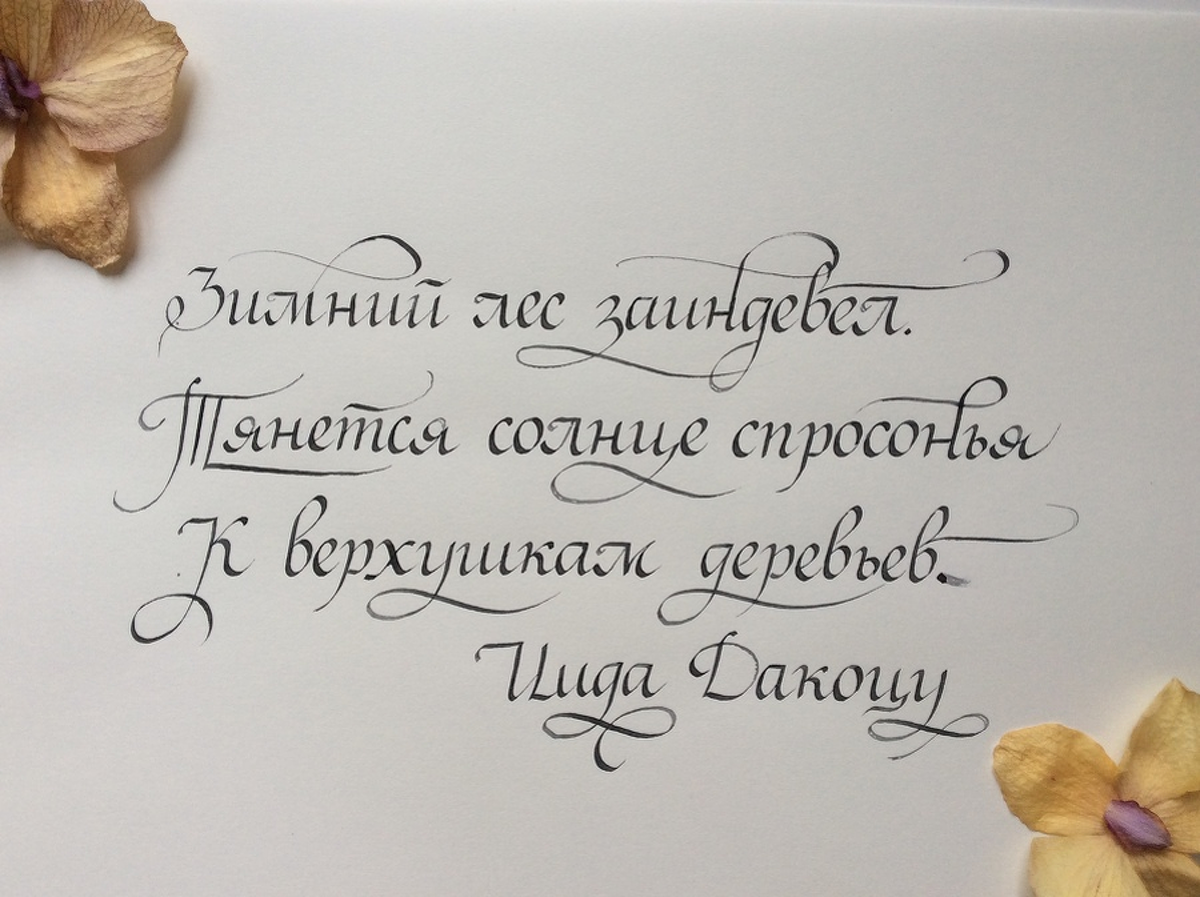 Зимний лес заиндевел.
Тянется солнце спросонья
К верхушкам деревьев.
Иида Дакоцу